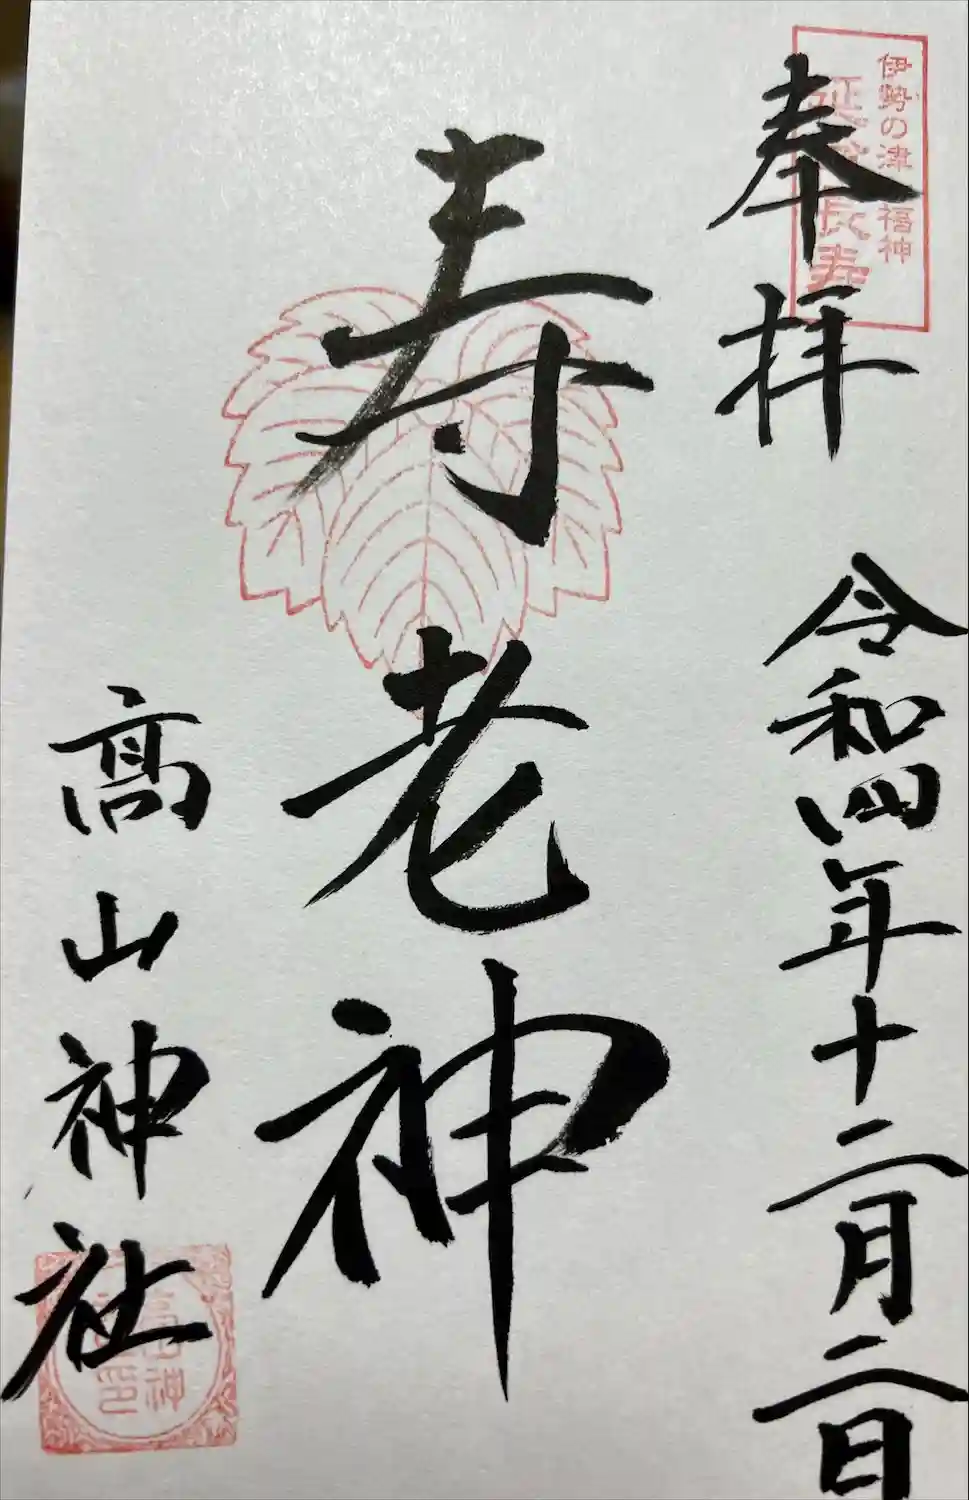 伊勢の津 福神
長寿
奉拝
令和四年十二月二日
寿老神
高山神社
神
印